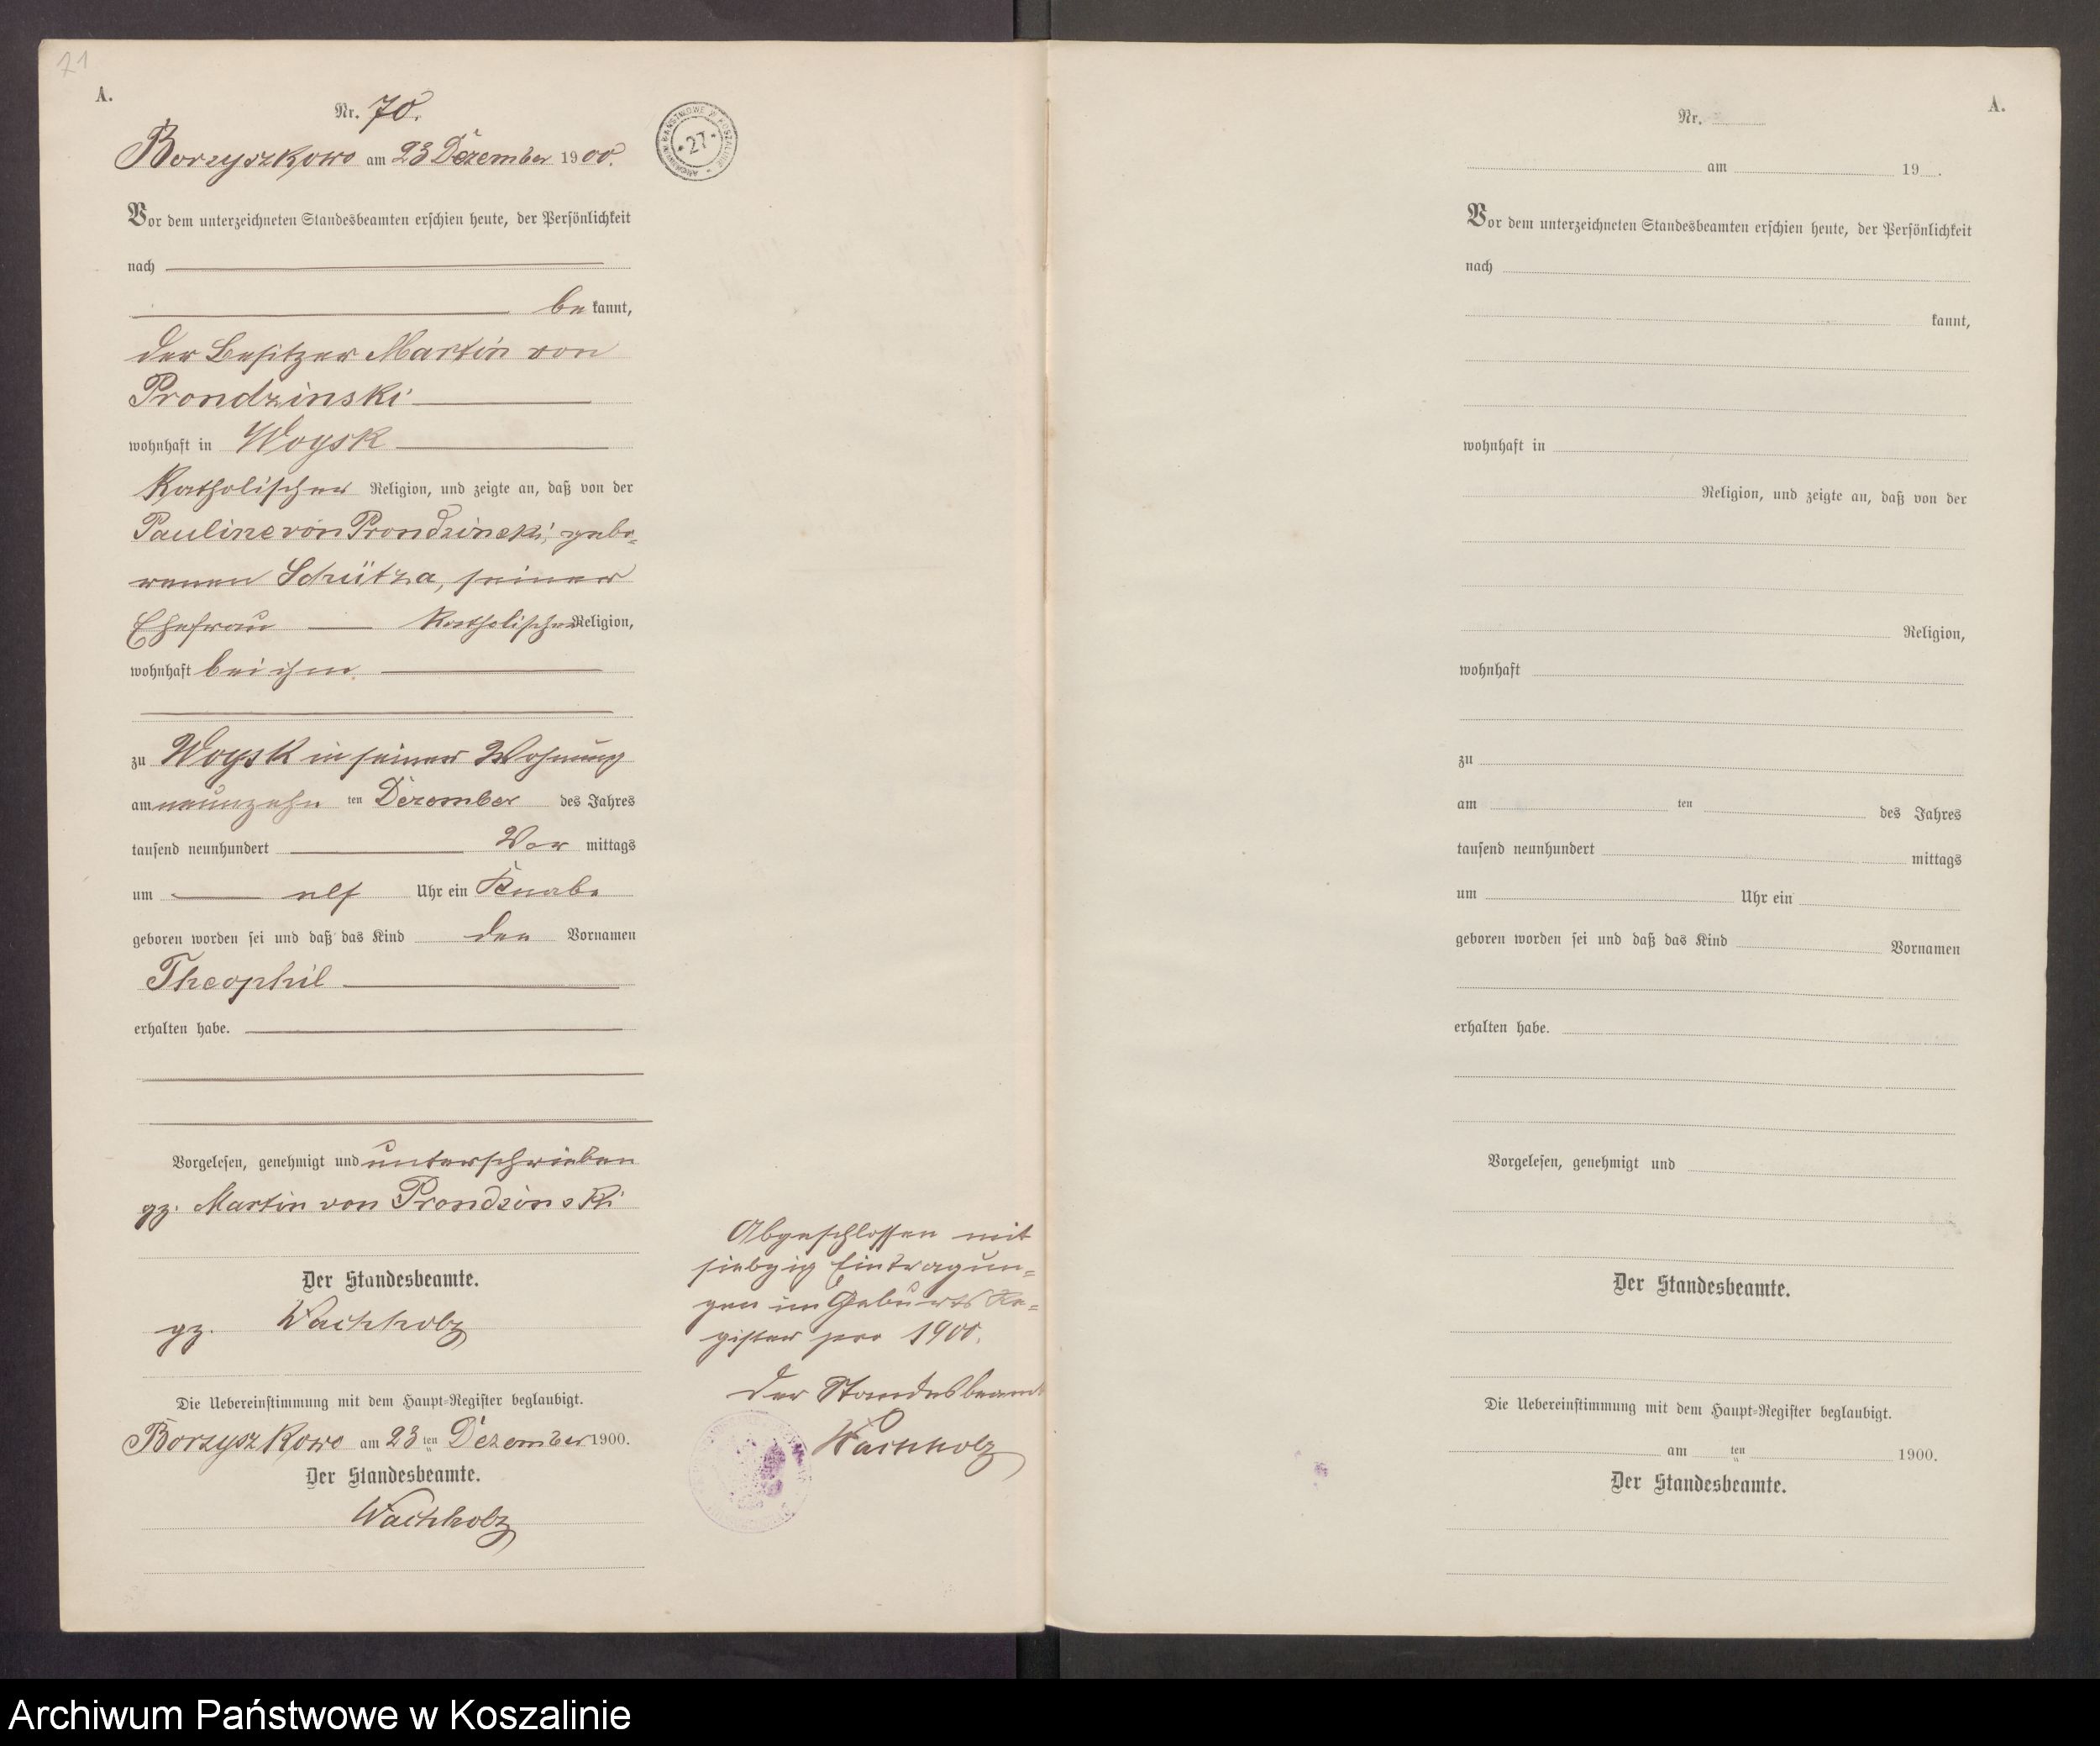 71
A.
Nr. 70.
Borzyszkowo am 23 Dezember 1900.
ARCHIWUM PAŃSTWOWE W KOSZALINIE
27
Vor dem unterzeichneten Standesbeamten erschien heute, der Persönlichkeit
nach
bekannt,
der Besitzer Martin von
Prondzinski
wohnhaft in Woysk
katholischer Religion, und zeigte an, daß von der
Pauline von Prondzinski, gebo=
renen Schütza, seiner
Ehefrau katholischer Religion,
wohnhaft bei ihm
zu Woysk in seiner Wohnung
am neunzehn ten Dezember des Jahres
tausend neunhundert Vor mittags
um elf Uhr ein Knabe
geboren worden sei und daß das Kind den Vornamen
Theophil
erhalten habe.
Vorgelesen, genehmigt und unterschrieben
gz. Martin von Prondzinski
Der Standesbeamte.
gz. Wachholz
Die Uebereinstimmung mit dem Haupt-Register beglaubigt.
Borzyszkowo am 23 ten Dezember 1900.
Der Standesbeamte.
Wachholz
Abgeschlossen mit
siebzig Eintragun=
gen im Geburts Re=
gister pro 1900.
Der Standesbeamte
Wachholz
A.
Nr.
am 19 .
Vor dem unterzeichneten Standesbeamten erschien heute, der Persönlichkeit
nach
kannt,
wohnhaft in
Religion, und zeigte an, daß von der
Religion,
wohnhaft
zu
am ten des Jahres
tausend neunhundert mittags
um Uhr ein
geboren worden sei und daß das Kind Vornamen
erhalten habe.
Vorgelesen, genehmigt und
Der Standesbeamte.
Die Uebereinstimmung mit dem Haupt-Register beglaubigt.
am ten 1900.
Der Standesbeamte.
Archiwum Państwowe w Koszalinie